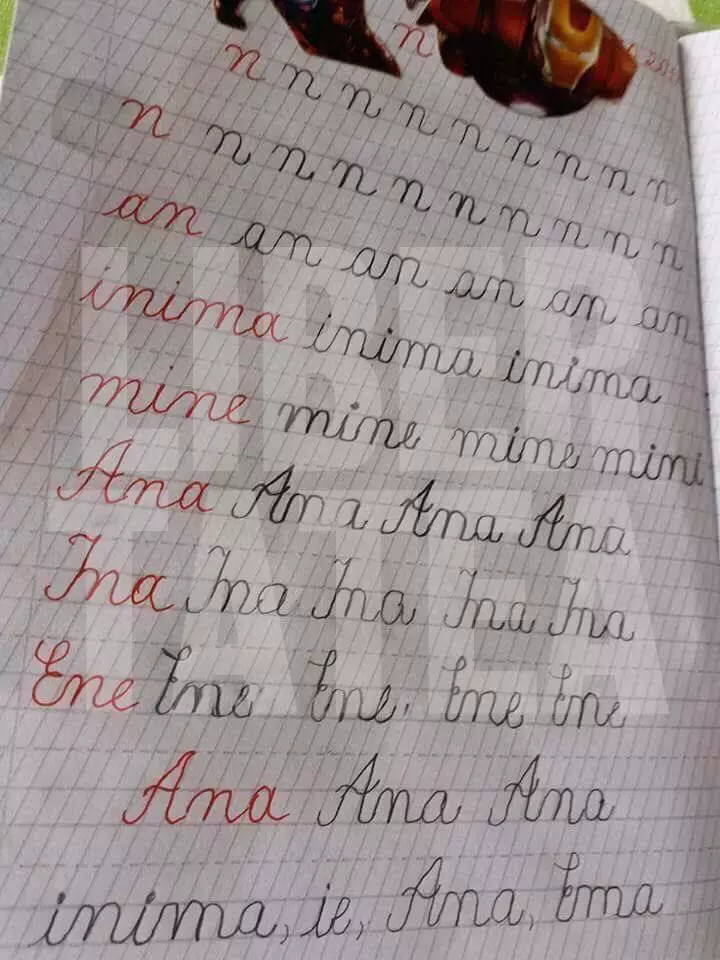 n
n n n n n n n n n
n n n n n n n n n n
an an an an an an
inima inima inima
mine mine mine mini
Ana Ana Ana Ana
Ina Ina Ina Ina Ina
Ene Ene Ene Ene Ene
Ana Ana Ana
inima, ie, Ana, Ema
LIBER
TATEA